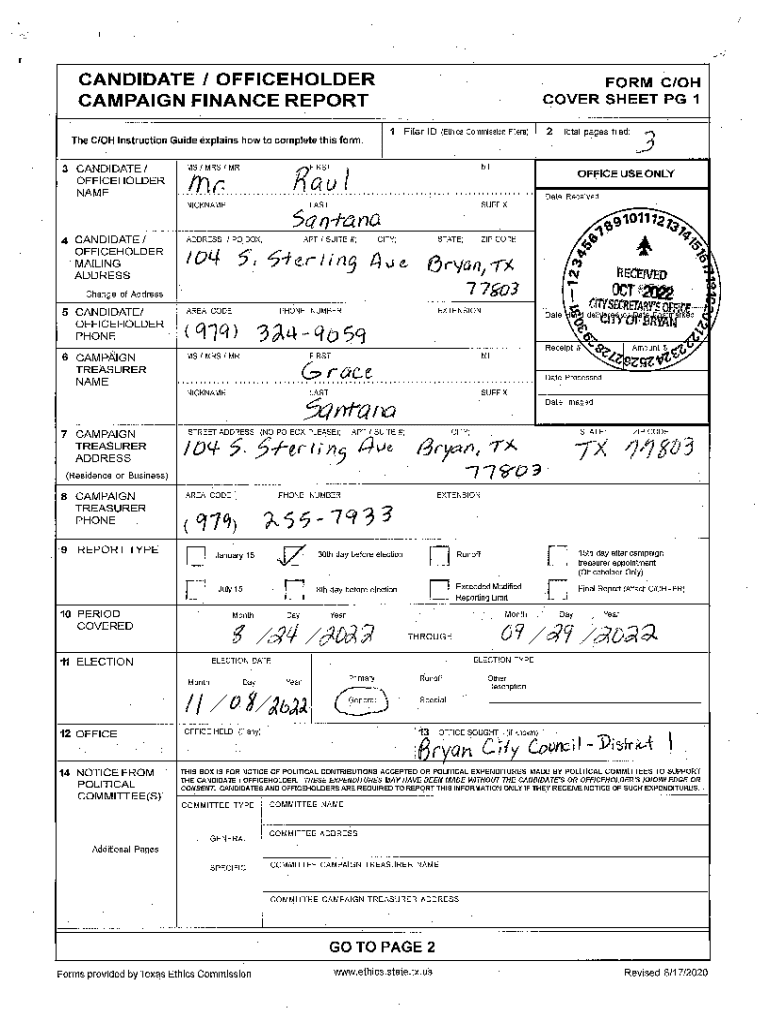 CANDIDATE / OFFICEHOLDER
CAMPAIGN FINANCE REPORT
FORM C/OH
COVER SHEET PG 1
The C/OH Instruction Guide explains how to complete this form.
1 Filer ID (Ethics Commission Filers)
2 Total pages filed:
3
3 CANDIDATE / OFFICEHOLDER NAME
MS / MRS / MR FIRST MI
Mr. Raul
NICKNAME LAST SUFFIX
Santana
OFFICE USE ONLY
Date Received
1 2 3 4 5 6 7 8 9 10 11 12 13 14 15 16 17 18 19 20 21 22 23 24 25 26 27 28 29 30 31
RECEIVED
OCT 2022
CITY SECRETARY'S OFFICE
CITY OF BRYAN
4 CANDIDATE / OFFICEHOLDER MAILING ADDRESS
Change of Address
ADDRESS / PO BOX; APT / SUITE #; CITY; STATE; ZIP CODE
104 S. Sterling Ave Bryan, TX
77803
5 CANDIDATE/ OFFICEHOLDER PHONE
AREA CODE PHONE NUMBER EXTENSION
(979) 324-9059
Receipt # Amount $
Date Processed
Date Imaged
6 CAMPAIGN TREASURER NAME
MS / MRS / MR FIRST MI
Grace
NICKNAME LAST SUFFIX
Santana
7 CAMPAIGN TREASURER ADDRESS
(Residence or Business)
STREET ADDRESS (NO PO BOX PLEASE); APT / SUITE #; CITY; STATE; ZIP CODE
104 S. Sterling Ave Bryan, TX TX 77803
77803
8 CAMPAIGN TREASURER PHONE
AREA CODE PHONE NUMBER EXTENSION
(979) 255-7933
9 REPORT TYPE
January 15
30th day before election
Runoff
15th day after campaign treasurer appointment (Officeholder Only)
July 15
8th day before election
Exceeded Modified Reporting Limit
Final Report (Attach C/OH - FR)
10 PERIOD COVERED
Month Day Year
8 / 24 / 2022
THROUGH
Month Day Year
09 / 29 / 2022
11 ELECTION
ELECTION DATE
Month Day Year
11 / 08 / 2022
ELECTION TYPE
Primary Runoff Other Description
General Special
12 OFFICE
OFFICE HELD (if any)
13 OFFICE SOUGHT (if known)
Bryan City Council - District 1
14 NOTICE FROM POLITICAL COMMITTEE(S)
THIS BOX IS FOR NOTICE OF POLITICAL CONTRIBUTIONS ACCEPTED OR POLITICAL EXPENDITURES MADE BY POLITICAL COMMITTEES TO SUPPORT
THE CANDIDATE / OFFICEHOLDER. THESE EXPENDITURES MAY HAVE BEEN MADE WITHOUT THE CANDIDATE'S OR OFFICEHOLDER'S KNOWLEDGE OR
CONSENT. CANDIDATES AND OFFICEHOLDERS ARE REQUIRED TO REPORT THIS INFORMATION ONLY IF THEY RECEIVE NOTICE OF SUCH EXPENDITURES.
COMMITTEE TYPE
COMMITTEE NAME
GENERAL
COMMITTEE ADDRESS
Additional Pages
SPECIFIC
COMMITTEE CAMPAIGN TREASURER NAME
COMMITTEE CAMPAIGN TREASURER ADDRESS
GO TO PAGE 2
Forms provided by Texas Ethics Commission
www.ethics.state.tx.us
Revised 8/17/2020